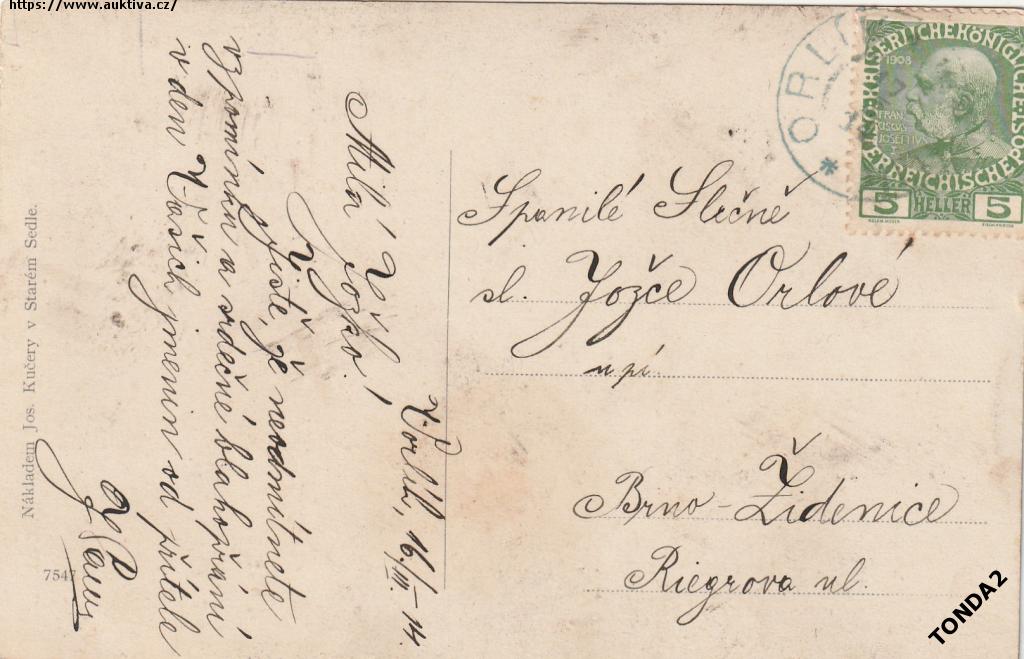 https://www.auktiva.cz/
V Orlík, 16./III.-14.
Milá Jožko!
Jistě, že neodmítnete
vzpomínku a srdečné blahopřání
v den Vašich jmenin od přítele
Nákladem Jos. Kučery v Starém Sedle.
7547
* ORLÍ
KAISERLICHE KÖNIGLICHE ÖSTERREICHISCHE POST
1908
5 HELLER 5
Spanilé Slečně
sl. Jožče Orlové
Brno - Židenice
Riegrova ul.
TONDA2